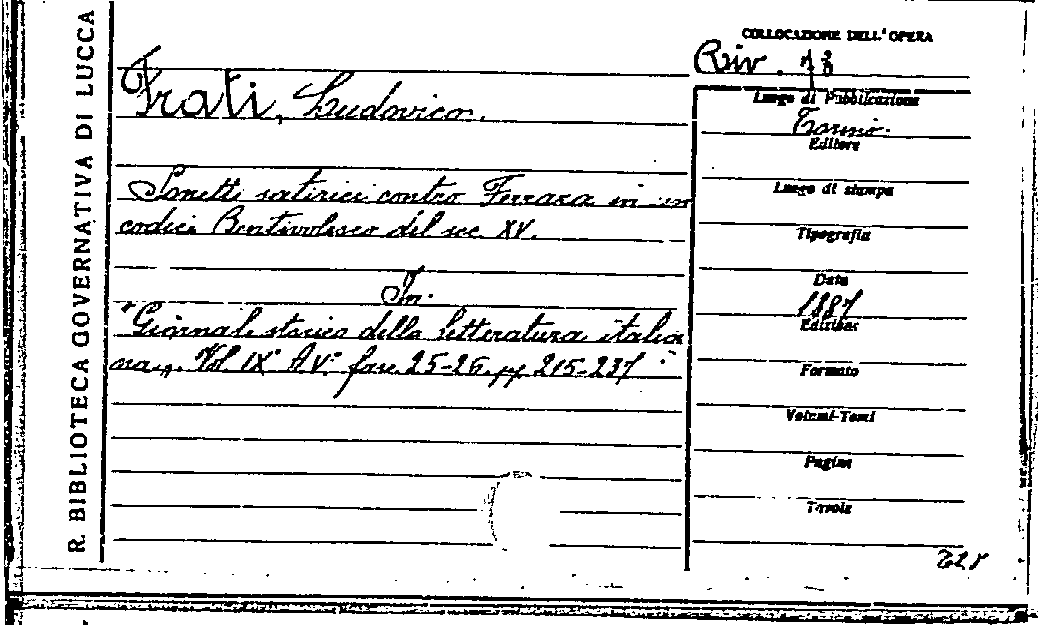 R. BIBLIOTECA GOVERNATIVA DI LUCCA
COLLOCAZIONE DELL'OPERA
Riv. 78
Frati, Ludovico.
Sonetti satirici contro Ferrara in un
codici Bentivolesco del sec. XV.
In.
"Giornale storico della letteratura italia
na„. Vol. IX° A. V° fasc. 25-26. pp. 215-237
Luogo di Pubblicazione
Torino.
Editore
Luogo di stampa
Tipografia
Data
1887
Edizione
Formato
Volumi-Tomi
Pagine
Tavole